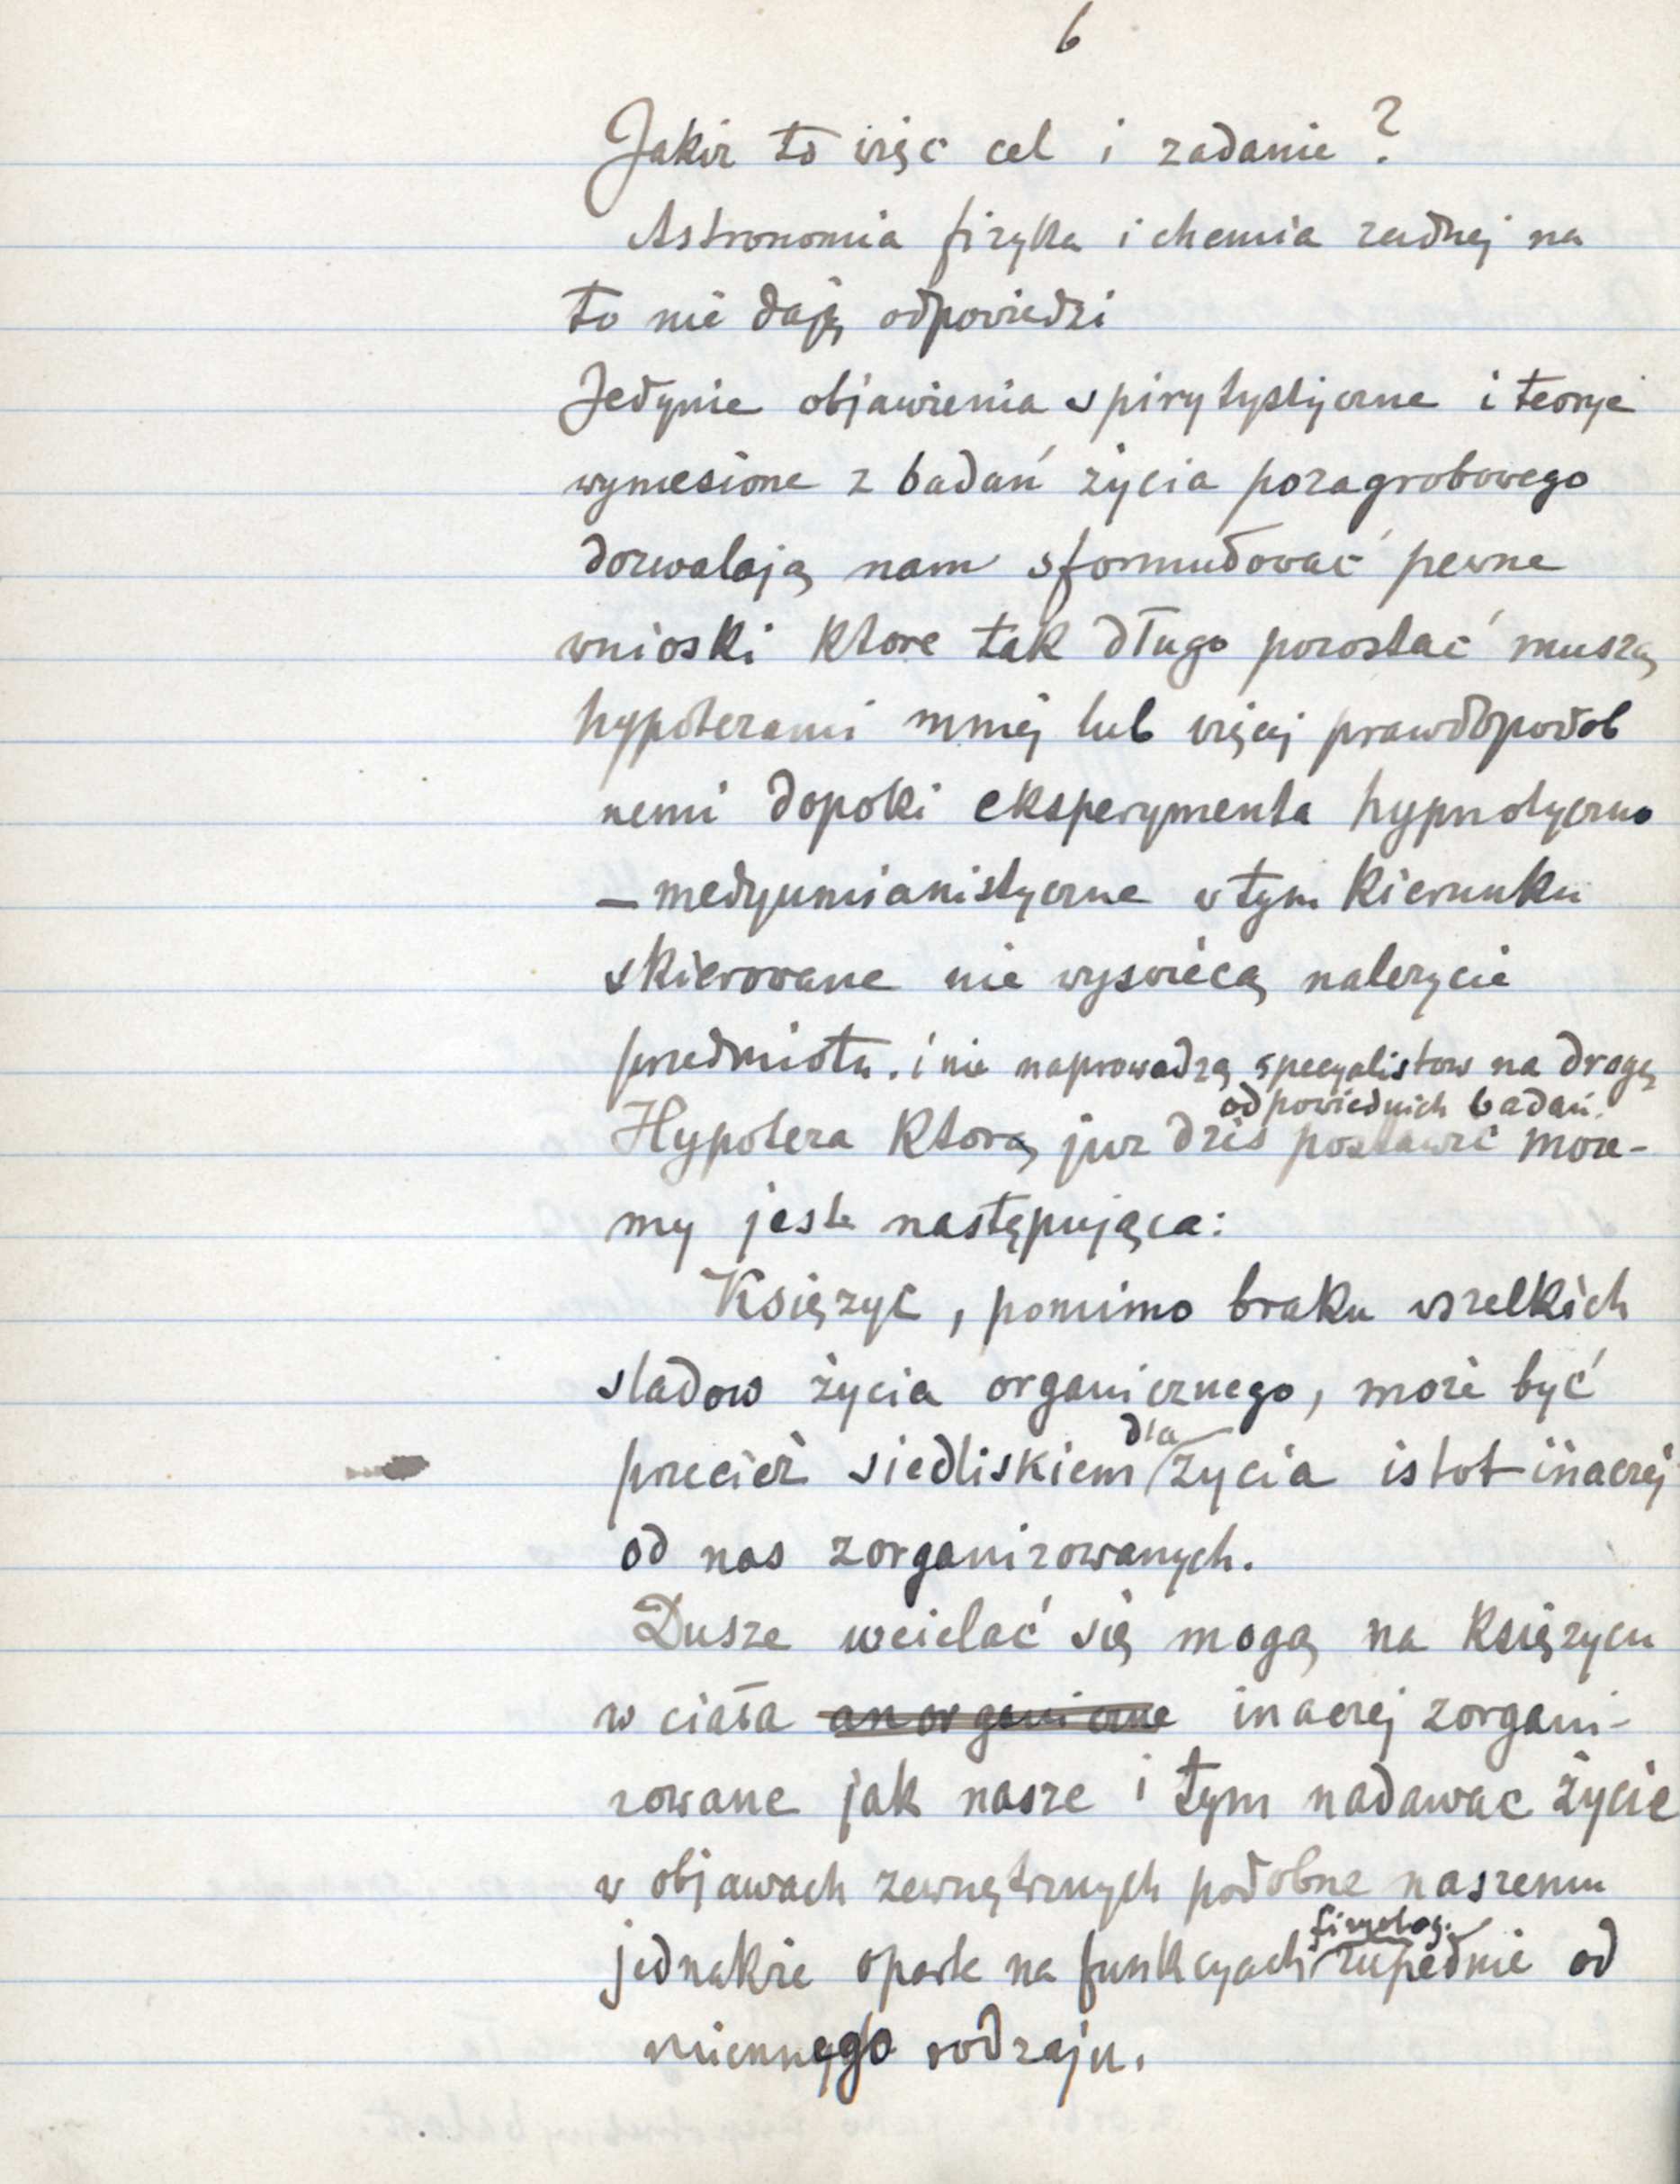 6
Jakiż to więc cel i zadanie?
Astronomia fizyka i chemia zadnej na
to nie dają odpowiedzi
Jedynie objawienia spirytystyczne i teorje
wyniesione z badań życia pozagrobowego
dozwalają nam sformułować pewne
wnioski ktore tak długo pozostać muszą
hypotezami mniej lub więcej prawdopodob
nemi dopoki eksperymenta hypnotyczno
– medyumianistyczne w tym kierunku
skierowane nie wyswiecą nalezycie
przedmiotu. i nie naprowadzą specyalistow na drogę
odpowiednich badań.
Hypoteza ktorą juz dzis postawić moze-
my jest następująca:
Księzyc, pomimo braku wszelkich
sladow życia organicznego, może być
przecież siedliskiem dla życia istot inaczej
od nas zorganizowanych.
Dusze wcielać się mogą na księzycu
w ciała anorganiczne inaczej zorgani-
zowane jak nasze i tym nadawac życie
w objawach zewnętrznych podobne naszemu
jednakże oparte na funkcyach fizyolog. zupełnie od
miennego rodzaju.